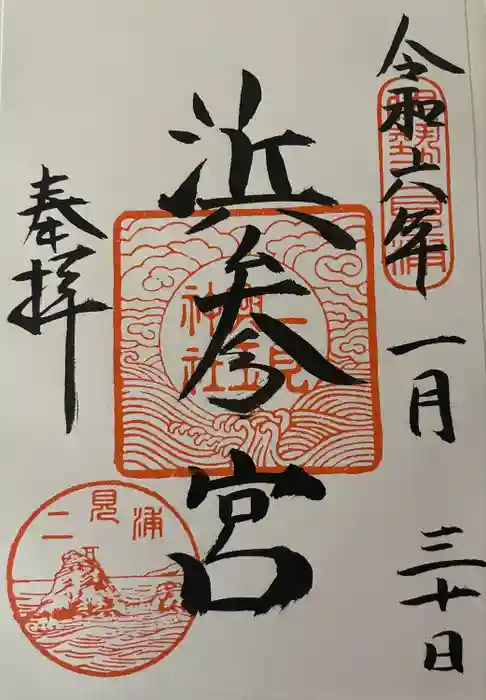 令和六年 一月 三十日
伊勢二見浦
浜参宮
二見興玉神社
奉拝
二見浦